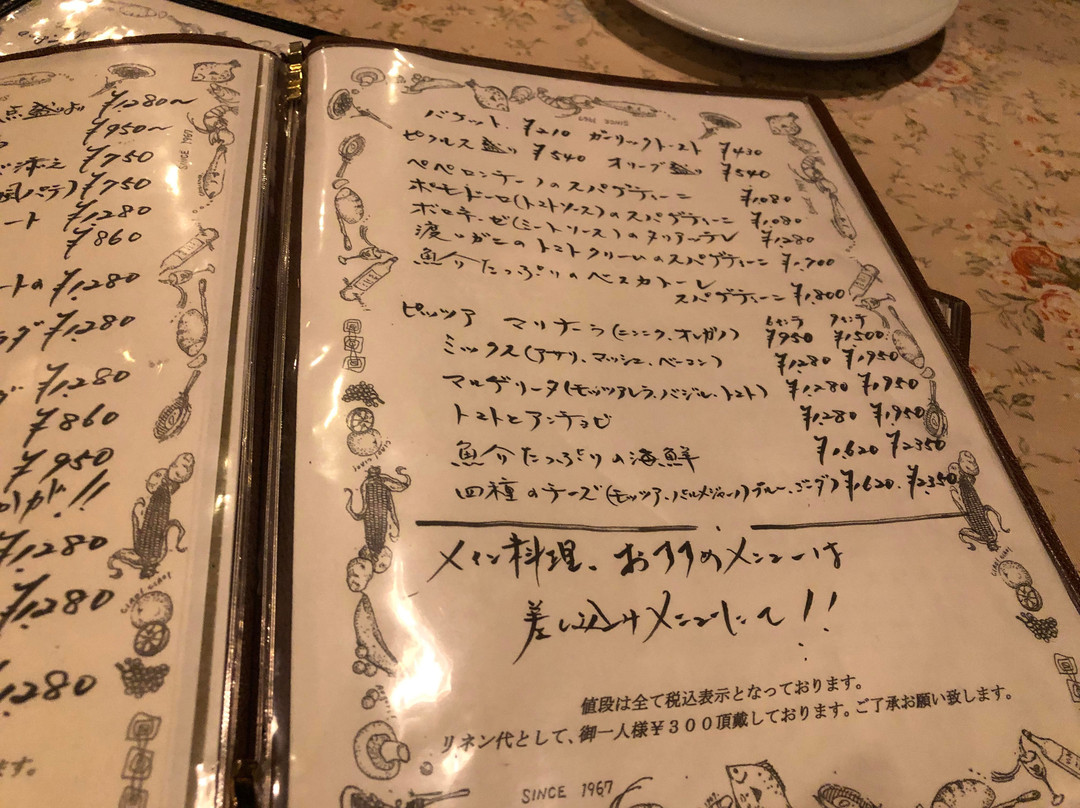 点盛り ¥1,280〜
¥950〜
添え ¥750
風パテ) ¥750
ート ¥1,280
¥860
ートの ¥1,280
ラダ ¥1,280
¥1,280
¥860
¥950
かが!!
¥1,280
¥1,280
1,280
ます。
SINCE 1967
バケット、¥210 ガーリックトースト ¥430
ピクルス盛り ¥540 オリーブ盛り ¥540
ペペロンチーノのスパゲティーニ ¥1,080
ポモドーロ(トマトソース)のスパゲティーニ ¥1,080
ボロネーゼ(ミートソース)のタリアッテレ ¥1,280
渡りガニのトマトクリームのスパゲティーニ ¥1,700
魚介たっぷりのペスカトーレ
スパゲティーニ ¥1,800
ピッツア マリナーラ(ニンニク、オレガノ) ¥950 ¥1,500
ミックス(アサリ、マッシュ、ベーコン) ¥1,280 ¥1,950
マルゲリータ(モッツアレラ、バジル、トマト) ¥1,280 ¥1,950
トマトとアンチョビ ¥1,280 ¥1,950
魚介たっぷりの海鮮 ¥1,620 ¥2,350
四種のチーズ(モッツア、パルメジャーノ、ブルー、ゴーダ) ¥1,620、¥2,350
メイン料理、おすすめメニューは
差し込みメニューにて!!
値段は全て税込表示となっております。
リネン代として、御一人様¥300頂戴しております。ご了承お願い致します。
SINCE 1967